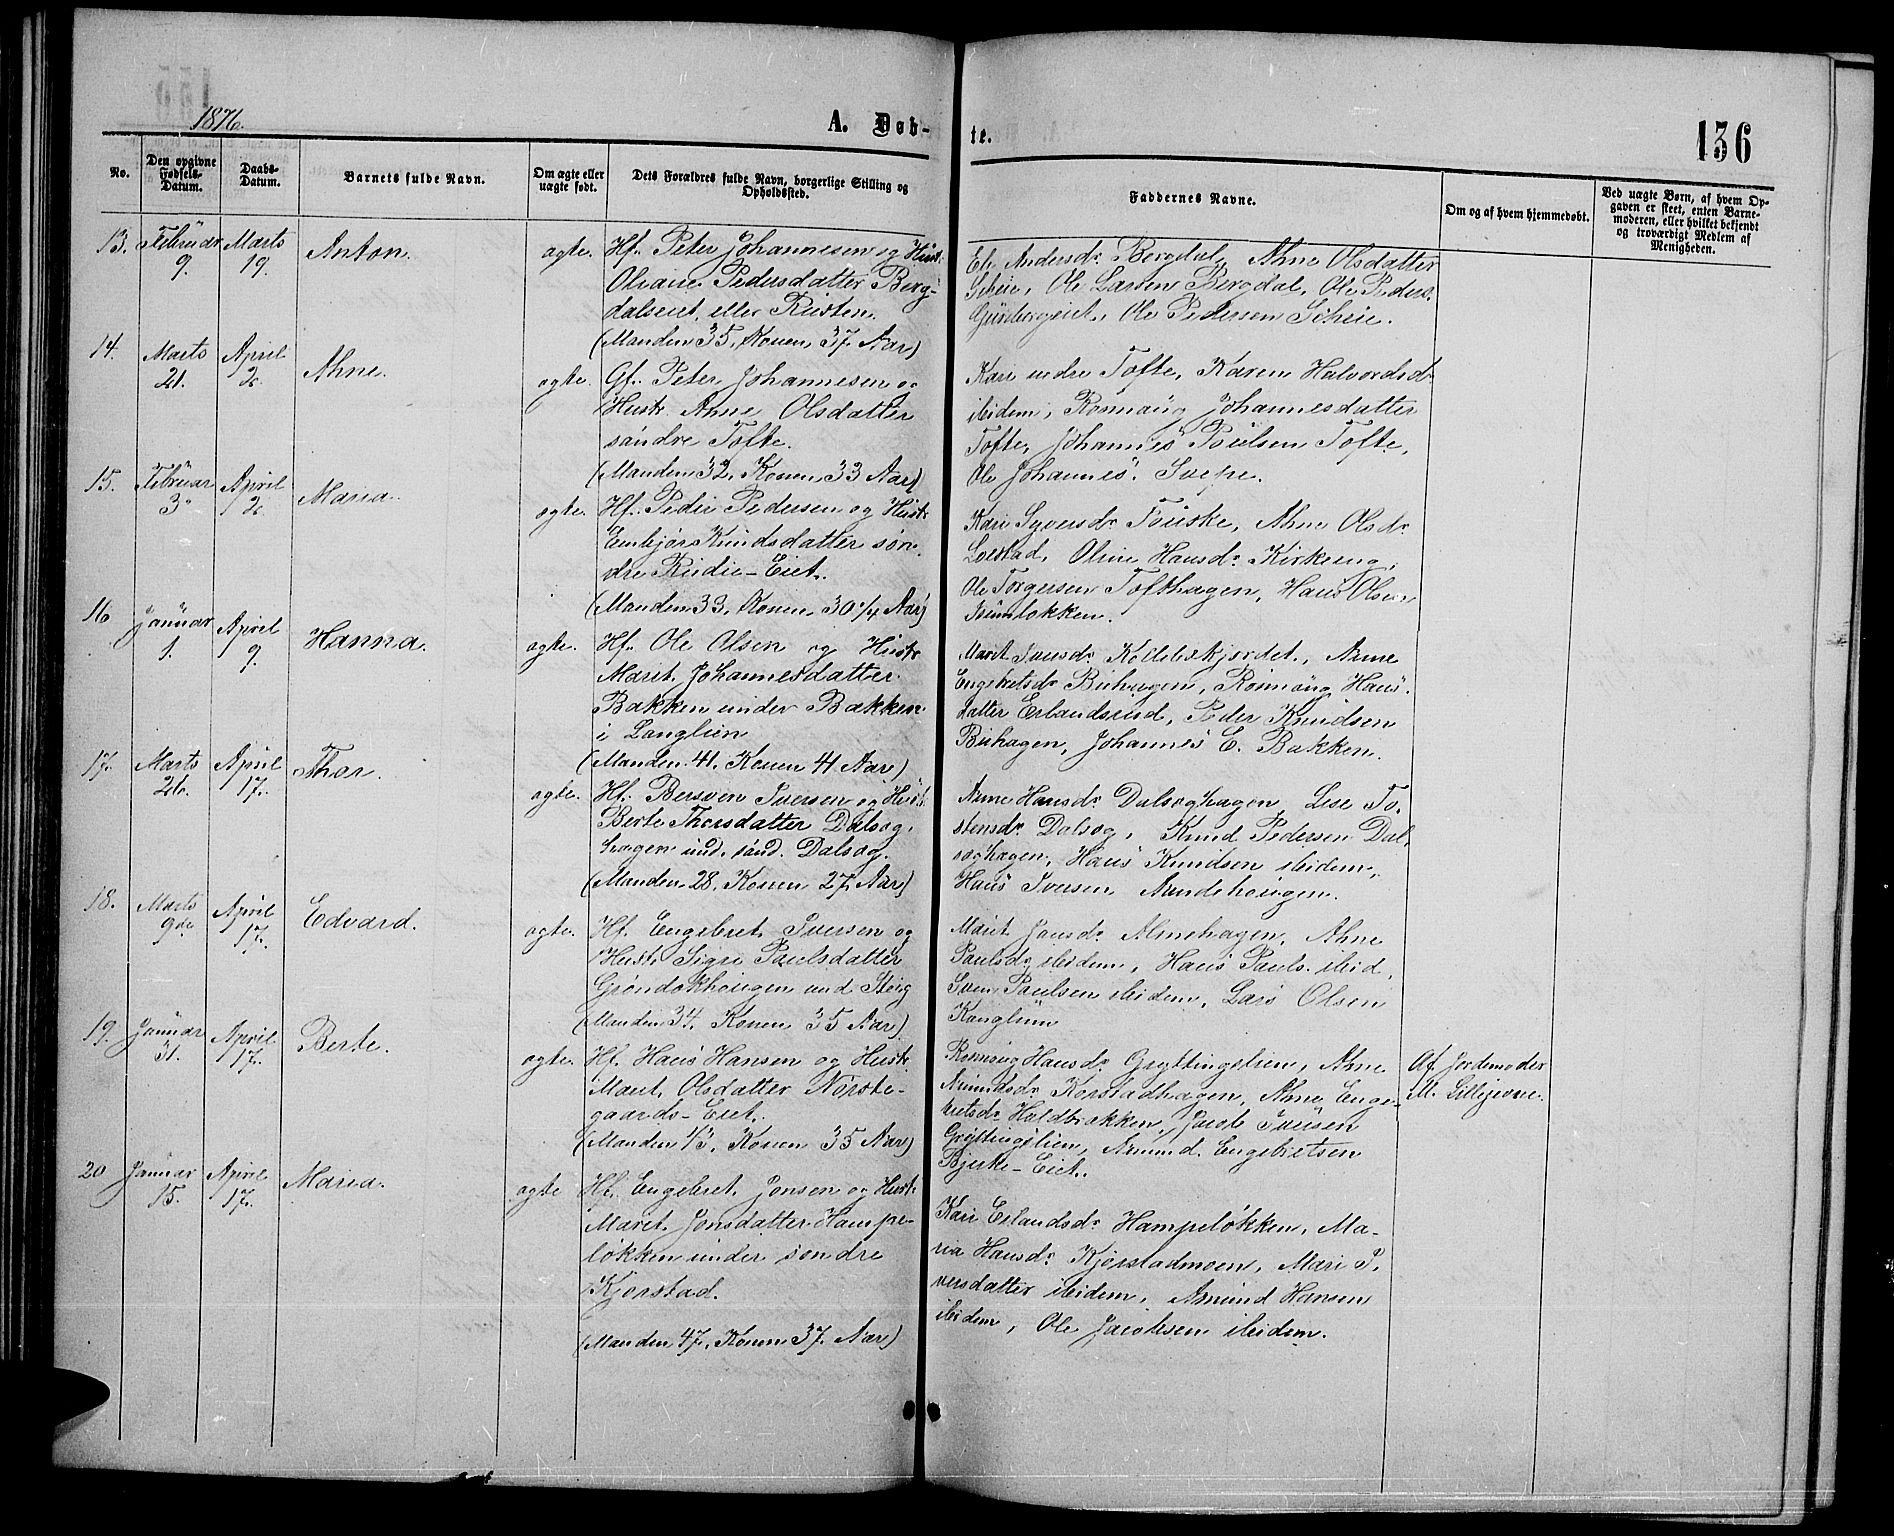 1876.
A. Døb-
te.
136
No.
Den opgivne Fødsels-Datum.
Daabs-Datum.
Barnets fulde Navn.
Om ægte eller uægte født.
Dets Forældres fulde Navn, borgerlige Stilling og Opholdssted.
Faddernes Navne.
Om og af hvem hjemmedøbt.
Ved uægte Børn, af hvem Op-
gaven er skeet, enten Barne-
moderen, eller hvilket bekjendt
og troværdigt Medlem af
Menigheden.
13. Februar 9. Marts 19. Anton. ægte.
Hf. Peter Johannesen og Hust.
Oliane Pedersdatter Berg-
dalseiet, eller Rusten.
(Manden 35, Konen 37 Aar)
Andersdr. Bergdal, Ahne Olsdatter
Ole Larsen Bergdal, Ole Peders.
Ole Pedersen Scheie.
14. Marts 21. April 2. Ahne. ægte.
Gf. Peter Johannesen og
Hustr. Ahne Olsdatter
søndre Tofte.
(Manden 32, Konen 33 Aar)
Kari nedre Tofte, Karen Halvordsdr
ibidem, Ronnaug Johannesdatter
Tofte, Johannes Poulsen Tofte,
Ole Johannes. Svepe.
15. Februar 3. April 2. Maria. ægte.
Hf. Peder Pedersen og Hustr
Embjør Knudsdatter søn-
dre Rudie-Eiet.
(Manden 33, Konen 30 1/4 Aar)
Kari Syversdr. Fouske, Ahne Olsdr.
Loestad, Oline Hansdr. Kirkeeng,
Ole Torgersen Tofthagen, Hans Olsen
16 Januar 1. April 9. Hanna. ægte.
Hf. Ole Olsen og Hustr
Marit Johannesdatter
Bakken under Bakken
i Langlien
(Manden 41, Konen 41 Aar)
Marit Iversdr. Anne
Engebretsdr. Buhagen, Ronnaug Hans-
datter Erlandsrud, Peder Knudsen
Buhagen, Johannes E. Bakken.
17. Marts 26. April 17. Thor. ægte.
Hf. Bersven Iversen og Hust.
Berte Thorsdatter Dalsøg-
hagen und. sønd. Dalsøg.
(Manden 28, Konen 27 Aar)
Anne Hansdr. Dalsøghagen, Lise To-
stensdr. Dalsøg, Knud Pedersen Dal-
søghagen, Hans Knudsen ibidem,
Hans Iversen Nundehougen.
18. Marts 9de April 17. Edvard. ægte.
Hf. Engebret Iversen og
Hustr. Sigri Paulsdatter
Grøndokhougen und Steig
(Manden 34, Konen 35 Aar)
Marit Jonsdr. Almehagen, Ahne
Paulsdr. ibidem, Hans Pauls. ibid,
Iver Paulsen ibidem, Lars Olsen
Kongliun
19. Januar 31. April 17. Berte. ægte.
Hf. Hans Hansen og Hustr
Marit Olsdatter Nørste-
gaards-Eiet.
(Manden 43, Konen 35 Aar)
Ronnoug Hansdr. Gryttingslien, Ahne
Amundsdr. Korstadhagen, Ahne Enge-
bretsdr. Holdbrokken, Jacob Iversen
Gryttingslien, Amund Engebretsen
Bjerke-Eiet.
Af Jordemoder
M. Lillegiorne.
20 Januar 15. April 17. Maria. ægte
Hf. Engebret Jonsen og Hust.
Marit Jonsdatter Hampe-
løkken under søndre
Kjørstad.
(Manden 47, Konen 37 Aar)
Kari Erlandsdr. Hampeløkken, Ma-
ria Hansdr. Kjørstadmoen, Mari I-
versdatter ibidem, Amund Hansen
ibidem, Ole Jacobsen ibidem.